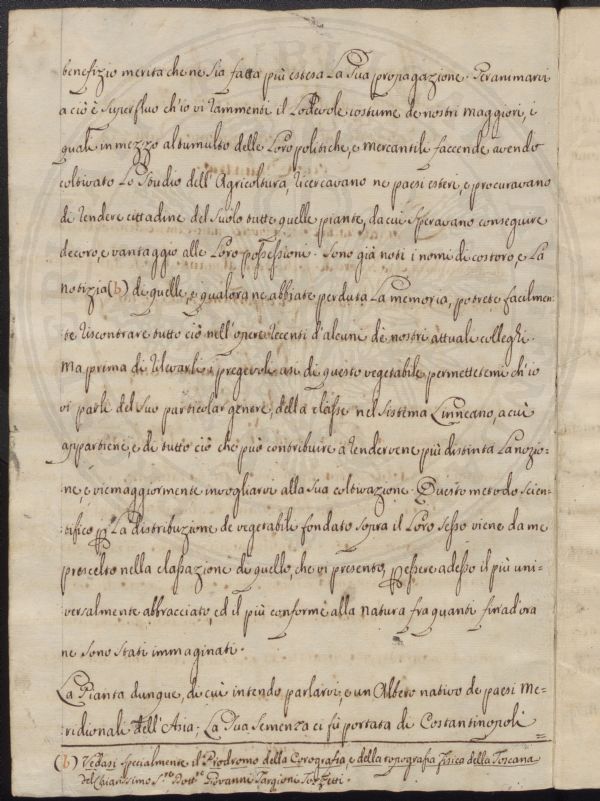 benefizio merita che ne sia fatta più estesa la Sua propagazione. Per animarvi
a ciò è superfluo ch'io vi rammenti il Lodevole costume de nostri maggiori, i
quali in mezzo al tumulto delle Loro politiche, e mercantili faccende avendo
coltivato Lo Studio dell'Agricoltura, ricercavano ne paesi esteri, e procuravano
di rendere cittadine del Suolo tutte quelle piante, da cui Speravano conseguire
decoro, e vantaggio alle Loro possessioni. Sono già noti i nomi di costoro, e La
notizia (b) di quelle, e qualora ne abbiate perduta La memoria, potrete facilmen-
te riscontrare tutto ciò nell'opere recenti d'alcuni de nostri attuali colleghi.
Ma prima di rilevar i pregevoli usi di questo vegetabile permettetemi ch'io
vi parli del Suo particolar genere, della classe nel Sistema Linneano, a cui
appartiene, e di tutto ciò che può contribuire a rendervene più distinta La nozio-
ne, e viemaggiormente invogliarvi alla Sua coltivazione. Questo metodo Scien-
tifico p La distribuzione de vegetabili fondato Sopra il Loro Sesso viene da me
prescelto nella classazione di quello, che vi presento, p essere adesso il più uni-
versalmente abbracciato, ed il più conforme alla natura fra quanti fin'ad'ora
ne Sono Stati immaginati.
La Pianta dunque, di cui intendo parlarvi, e un Albero nativo de paesi Me-
ridionali dell'Asia; La Sua Semenza ci fù portata di Costantinopoli
(b) Vedasi Specialmente il Prodromo della Corografia, e della topografia fisica della Toscana
del Chiarissimo S.re Dott.re Giovanni Targioni Tozzetti.